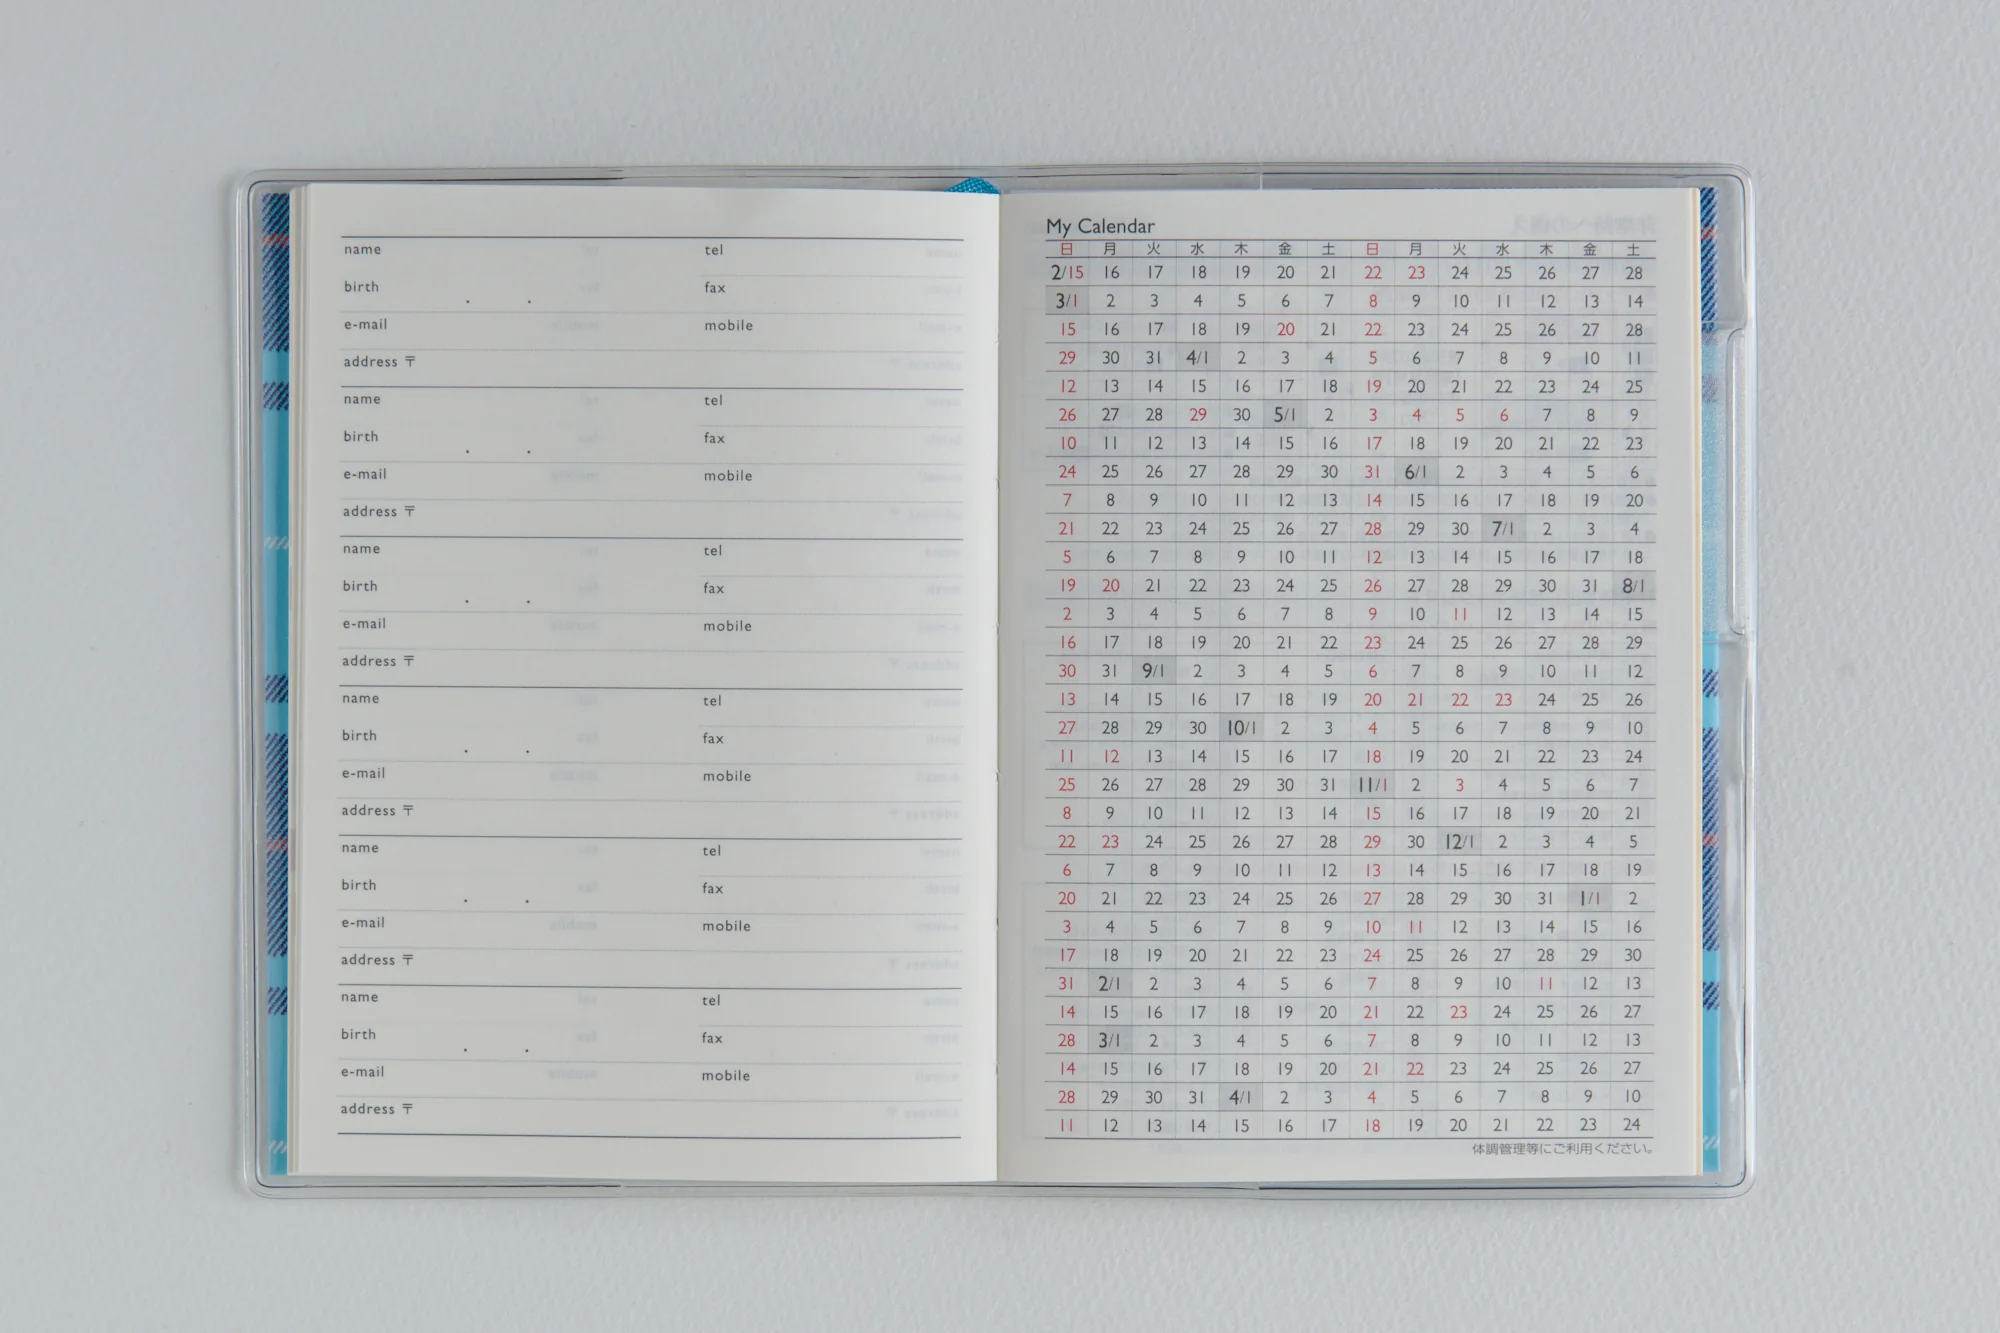 name tel
birth . . fax
e-mail mobile
address 〒
name tel
birth . . fax
e-mail mobile
address 〒
name tel
birth . . fax
e-mail mobile
address 〒
name tel
birth . . fax
e-mail mobile
address 〒
name tel
birth . . fax
e-mail mobile
address 〒
name tel
birth . . fax
e-mail mobile
address 〒
My Calendar
日 月 火 水 木 金 土 日 月 火 水 木 金 土
2/15 16 17 18 19 20 21 22 23 24 25 26 27 28
3/1 2 3 4 5 6 7 8 9 10 11 12 13 14
15 16 17 18 19 20 21 22 23 24 25 26 27 28
29 30 31 4/1 2 3 4 5 6 7 8 9 10 11
12 13 14 15 16 17 18 19 20 21 22 23 24 25
26 27 28 29 30 5/1 2 3 4 5 6 7 8 9
10 11 12 13 14 15 16 17 18 19 20 21 22 23
24 25 26 27 28 29 30 31 6/1 2 3 4 5 6
7 8 9 10 11 12 13 14 15 16 17 18 19 20
21 22 23 24 25 26 27 28 29 30 7/1 2 3 4
5 6 7 8 9 10 11 12 13 14 15 16 17 18
19 20 21 22 23 24 25 26 27 28 29 30 31 8/1
2 3 4 5 6 7 8 9 10 11 12 13 14 15
16 17 18 19 20 21 22 23 24 25 26 27 28 29
30 31 9/1 2 3 4 5 6 7 8 9 10 11 12
13 14 15 16 17 18 19 20 21 22 23 24 25 26
27 28 29 30 10/1 2 3 4 5 6 7 8 9 10
11 12 13 14 15 16 17 18 19 20 21 22 23 24
25 26 27 28 29 30 31 11/1 2 3 4 5 6 7
8 9 10 11 12 13 14 15 16 17 18 19 20 21
22 23 24 25 26 27 28 29 30 12/1 2 3 4 5
6 7 8 9 10 11 12 13 14 15 16 17 18 19
20 21 22 23 24 25 26 27 28 29 30 31 1/1 2
3 4 5 6 7 8 9 10 11 12 13 14 15 16
17 18 19 20 21 22 23 24 25 26 27 28 29 30
31 2/1 2 3 4 5 6 7 8 9 10 11 12 13
14 15 16 17 18 19 20 21 22 23 24 25 26 27
28 3/1 2 3 4 5 6 7 8 9 10 11 12 13
14 15 16 17 18 19 20 21 22 23 24 25 26 27
28 29 30 31 4/1 2 3 4 5 6 7 8 9 10
11 12 13 14 15 16 17 18 19 20 21 22 23 24
体調管理等にご利用ください。